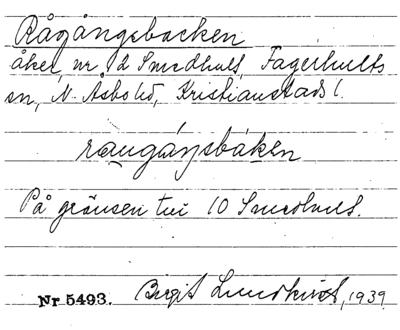 Rågångsbacken
åker, nr 2 Smedhult, Fagerhults
sn, N. Åsbo hd, Kristianstads l.
raugáŋsbáken
På gränsen till 10 Smedhult.
Nr 5493. Birgit Lundkvist, 1939